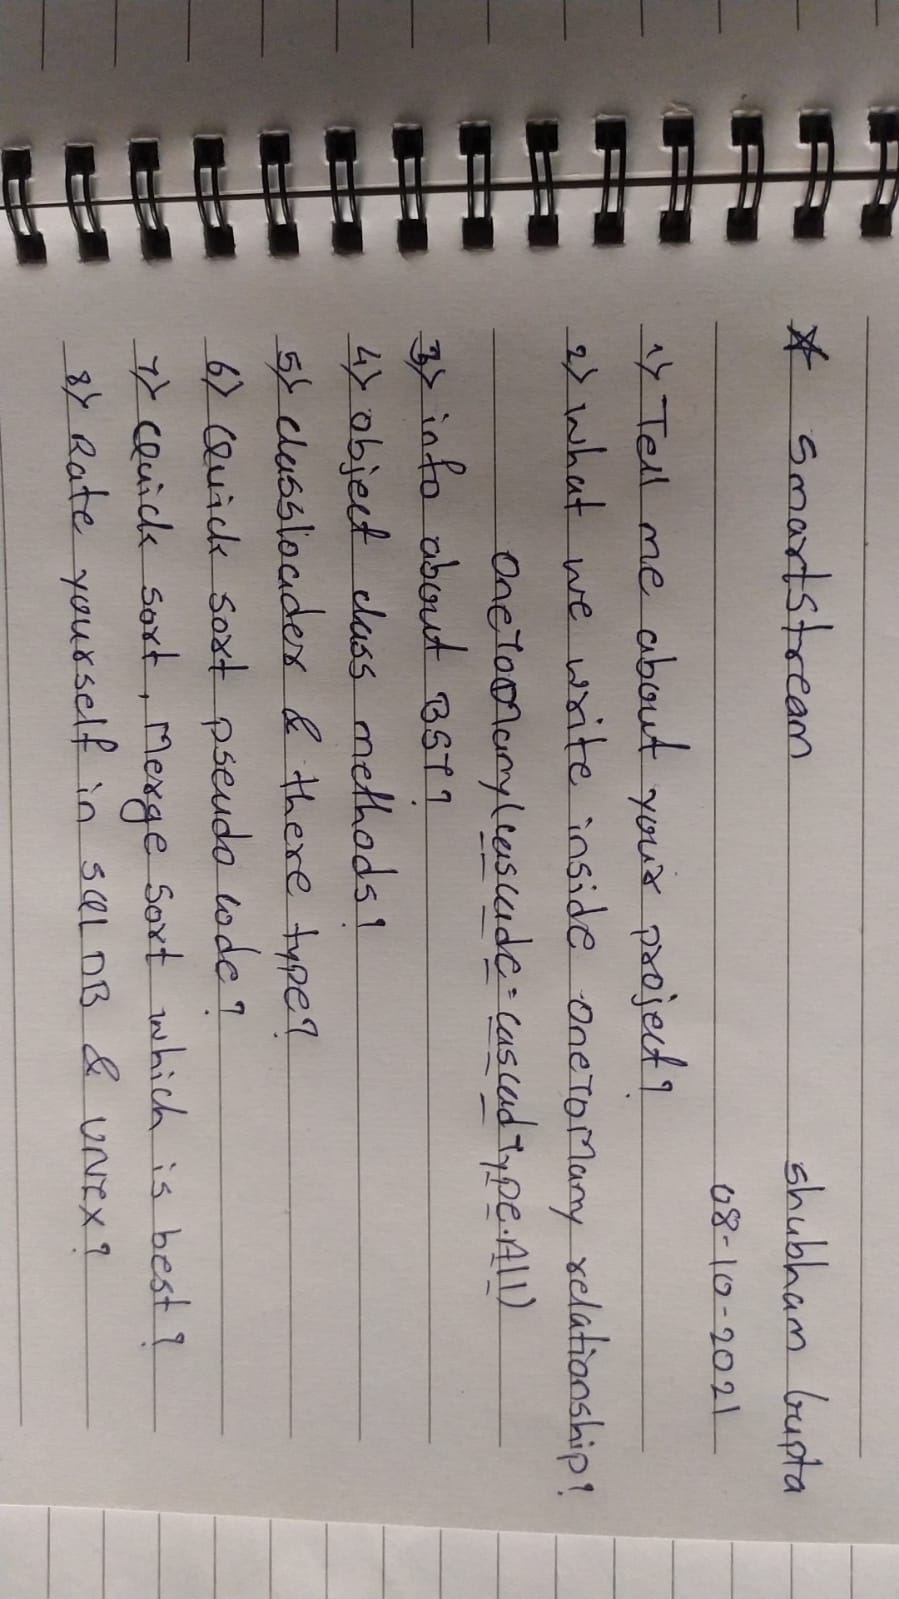 * Smartstream shubham Gupta
08-10-2021
1) Tell me about your project?
2) what we write inside oneToMany relationship?
OneToMany(cascade=cascadType.All)
3) info about BST?
4) object class methods?
5) classloader & there type?
6) Quick sort pseudo code?
7) Quick sort, Merge sort which is best?
8) Rate yourself in SQL DB & UNIX?